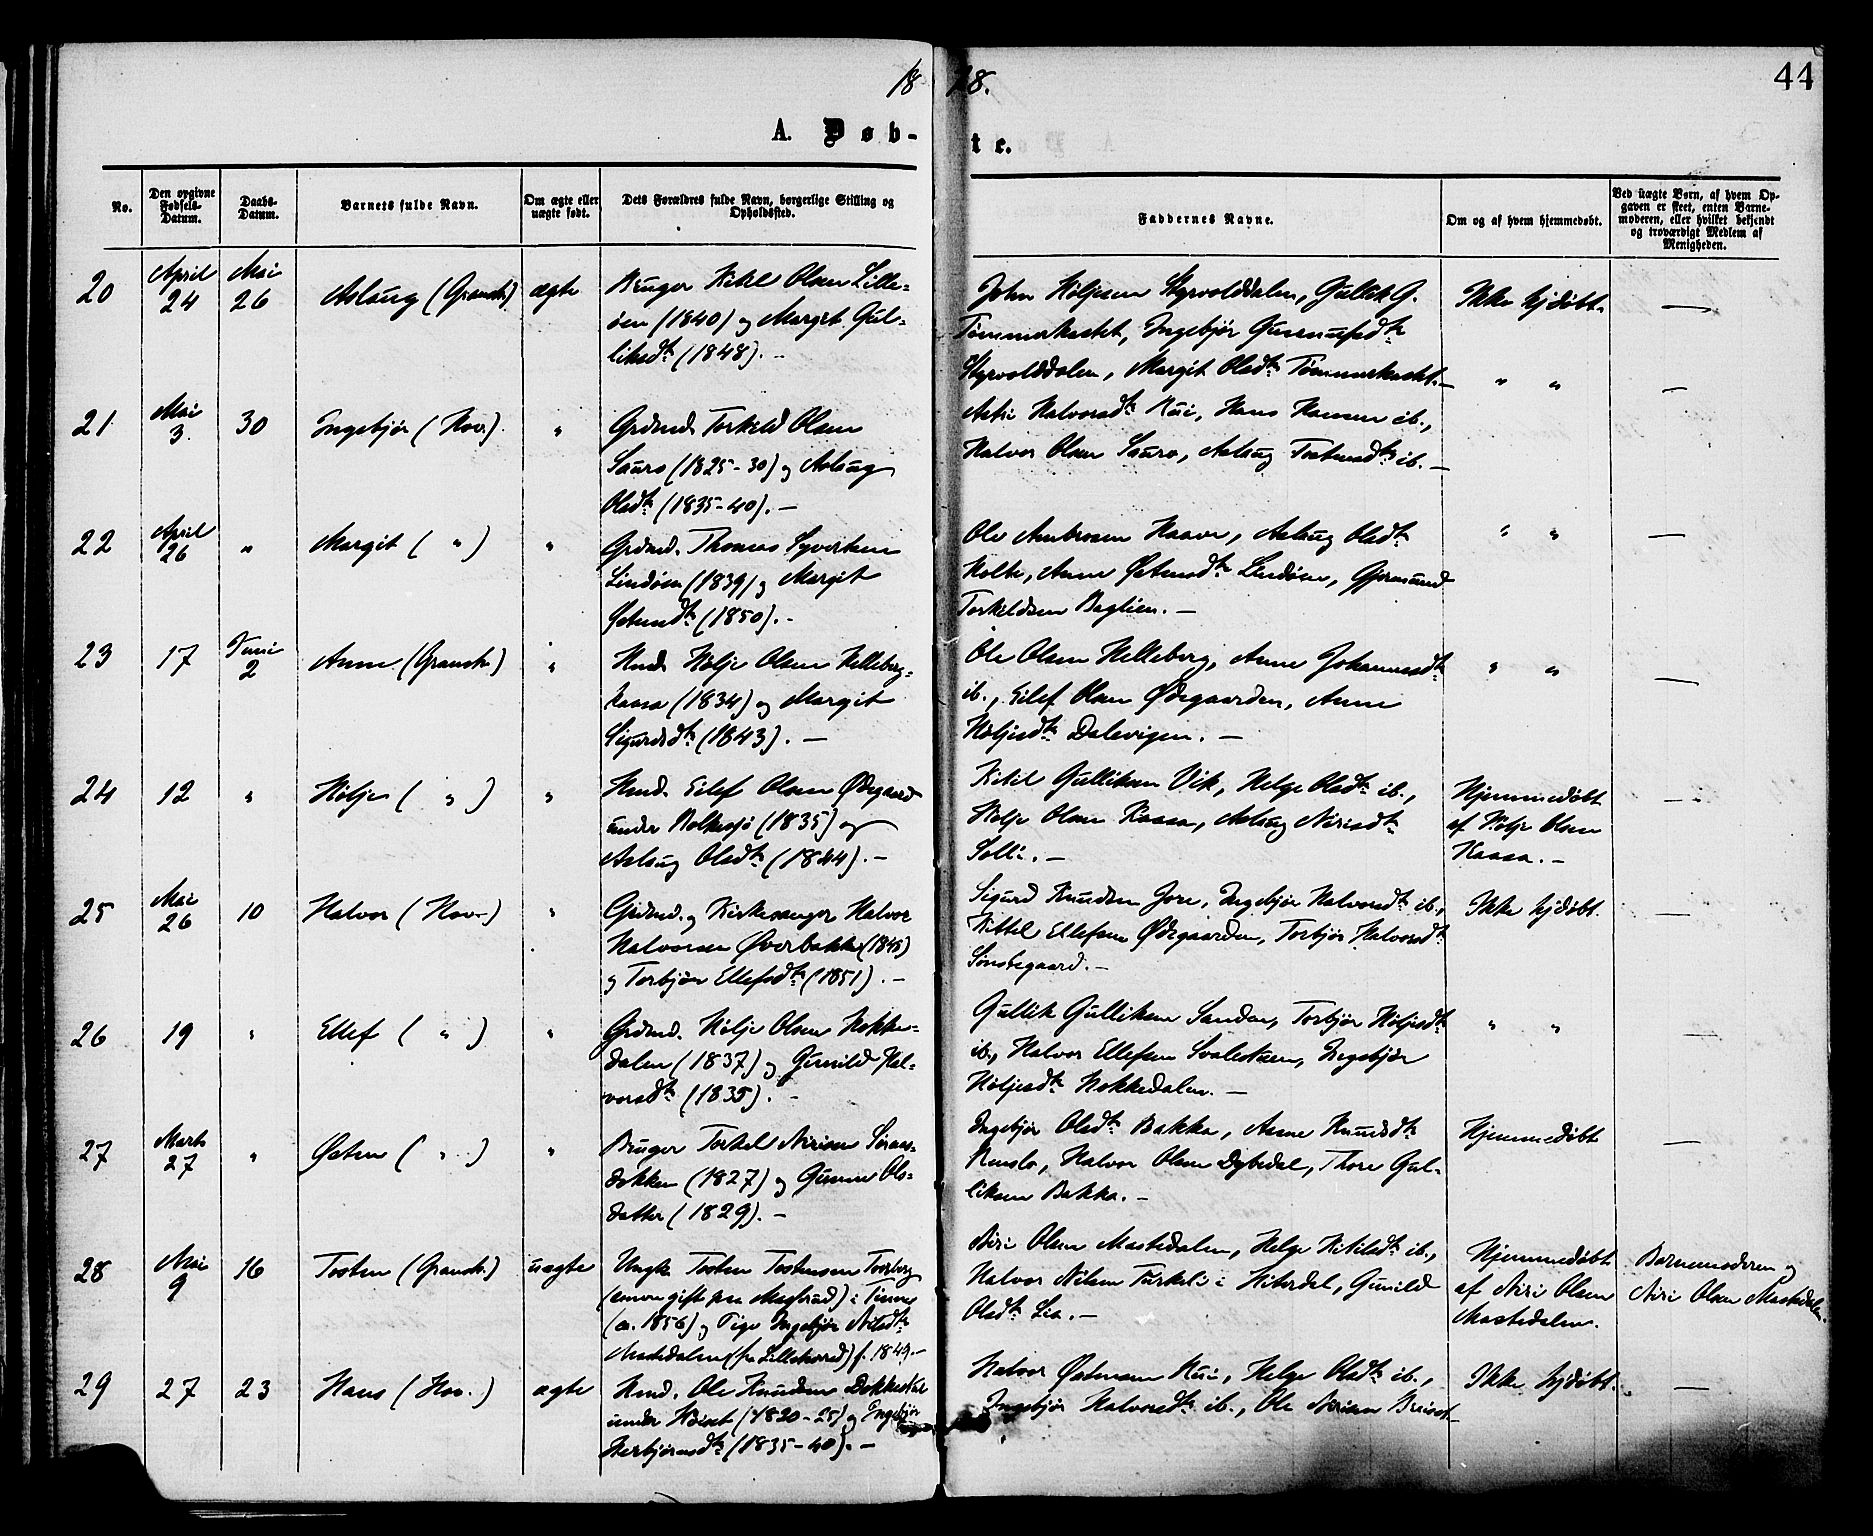 18
78.
44
A. Døb-
te.
No.
Den opgivne Fødsels-Datum.
Daabs-Datum.
Barnets fulde Navn.
Om ægte eller uægte født.
Dets Forældres fulde Navn, borgerlige Stilling og Opholdssted.
Faddernes Navne.
Om og af hvem hjemmedøbt.
Ved uægte Børn, af hvem Op-
gaven er skeet, enten Barne-
moderen, eller hvilket bekjendt
og troværdigt Medlem af
Menigheden.
20 April 24 Mai 26 Aslaug (Gransh.) ægte
Bruger Kitil Olsen Lille-
øen (1840) og Margit Gul-
liksdtr (1848). -
John Høljesen Styrvolddalen, Gullik G.
Tømmerkastet, Ingebjør
Styrvolddalen, Margit Olsdtr Tømmerkast. -
Ikke hjdøbt. —
21 Mai 3. 30 Ingebjør (Hov.) "
Grdmd. Torkild Olsen
Sauro (1825-30) og Aslaug
Olsdtr (1835-40). -
Astri Halvorsdtr Rui, Hans Hansen ib.,
Halvor Olsen Sauro, Aslaug Tostensdtr ib. -
" " —
22 April 26 " Margit ( " ) "
Grdmd. Thomas Syversen
Lindøen (1839) og Margit
Østensdtr (1850). -
Ole Ambrosen Haave, Aslaug Olsdtr
Holte, Anne Østensdtr Lindøen, Gjermund
Torkildsen Baglien. -
" " —
23 17 Juni 2 Anne (Gransh.) "
Hmd. Hølje Olsen Helleberg-
kaasa (1834) og Margit
Sigurdsdtr (1843). -
Ole Olsen Helleberg, Anne Johannesdtr
ib., Eilef Olsen Ødegaarden, Anne
Høljesdtr Dalevigen. -
" " —
24 12 " Hølje ( " ) "
Hmd. Eilef Olsen Ødegaard
under Bolkesjø (1835) og
Aslaug Olsdtr (1844). -
Kitil Gulliksen Vik, Helge Olsdtr ib.,
Hølje Olsen Kaasa, Aslaug Nirisdtr
Solli. -
Hjemmedøbt
af Hølje Olsen
Kaasa. -
—
25 Mai 26 10 Halvor (Hov.) "
Grdmd. og Kirkesanger Halvor
Halvorsen Øverbakka (1845)
og Torbjør Ellefsdtr (1851). -
Sigurd Knudsen Jore, Ingebjør Halvorsdtr ib.,
Kittel Ellefsen Ødegaarden, Torbjør Halvorsdtr
Sønstegaard. -
Ikke hjdøbt. —
26 19 " Ellef ( " ) "
Grdmd. Hølje Olsen Nokke-
dalen (1837) og Gunild Hal-
vorsdtr (1835). -
Gullik Gulliksen Sanden, Torbjør Høljesdtr
ib., Halvor Ellefsen Svalestuen, Ingebjør
Høljesdtr Nokkedalen. -
" " —
27 Marts 27 " Østen ( " ) "
Bruger Torkel Nirisen Soraas-
dokken (1827) og Gunne Ols-
datter (1829). -
Ingebjør Olsdtr Bakka, Anne Knudsdtr
Renslo, Halvor Olsen Dybedal, Thore Gul-
liksen Bakka. -
Hjemmedøbt —
28 Mai 9 16 Tosten (Gransh.) uægte
Ungk. Tosten Tostensen Torsberg
i Tinn
(ca. 1856) og Pige Ingebjør Nilsdtr
f. 1849. -
Niri Olsen Mastedalen, Helge Kitilsdtr ib.,
Halvor Nilsen Turkeli i Hiterdal, Gunild
Olsdtr Lia. -
Hjemmedøbt
af Niri Olsen
Mastedalen.
Barnemoderen og
Niri Olsen Mastedalen.
29 27 23 Hans (Hov.) ægte
Hmd. Ole Knudsen
under (1820-25) og Ingebjør
Herbjørnsdtr (1835-40). -
Halvor Østensen Rui, Helge Olsdtr ib.,
Ingebjør Halvorsdtr ib., Ole Nirisen
Ikke hjdøbt. —